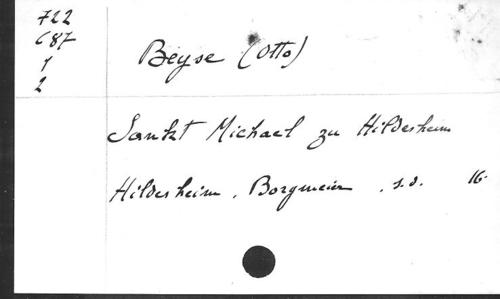 722
687
1
2
Beyse (Otto)
Sankt Michael zu Hildesheim
Hildesheim, Borgmeier, s.d. 16.